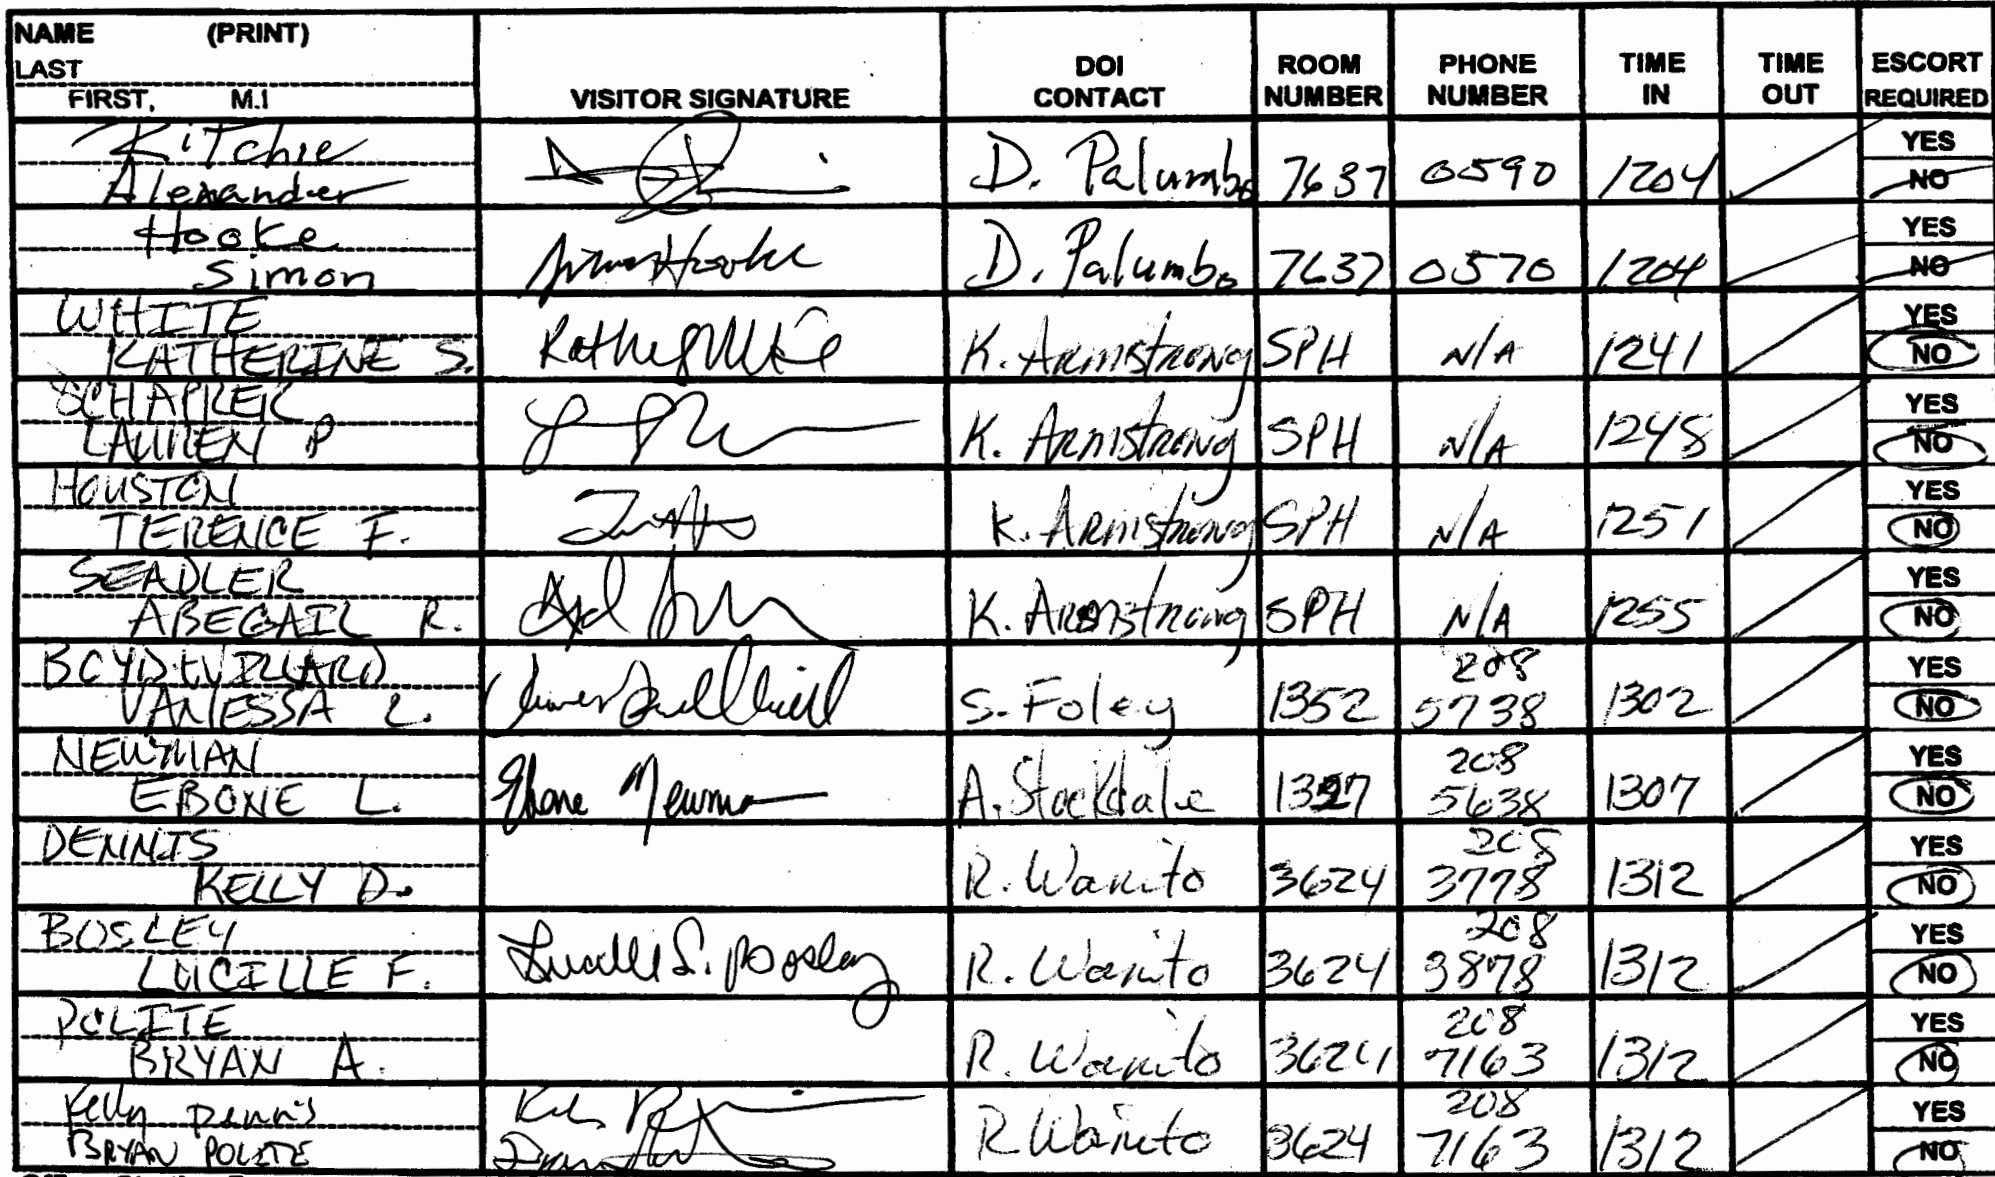 NAME (PRINT)
LAST
FIRST, M.I
VISITOR SIGNATURE
DOI CONTACT
ROOM NUMBER
PHONE NUMBER
TIME IN
TIME OUT
ESCORT REQUIRED
Ritchie
Alexander
D. Palumbo 7637 0590 1204 YES NO
Hooke
Simon
Simon Hooke D. Palumbo 7637 0570 1204 YES NO
WHITE
KATHERINE S.
K. Armstrong SPH N/A 1241 YES NO
LAUREN P
K. Armstrong SPH N/A 1248 YES NO
HOUSTON
TERENCE F.
K. Armstrong SPH N/A 1251 YES NO
SEADLER
ABEGAIL R.
K. Armstrong SPH N/A 1255 YES NO
BOYD WILLARD
VANESSA L.
S. Foley 1352 208 5738 1302 YES NO
NEWMAN
EBONE L.
Ebone Newman A. Stockdale 1327 208 5638 1307 YES NO
DENNIS
KELLY D.
R. Wanito 3624 208 3778 1312 YES NO
BOSLEY
LUCILLE F.
Lucille F. Bosley R. Wanito 3624 208 3878 1312 YES NO
POLITE
BRYAN A.
R. Wanito 3624 208 7163 1312 YES NO
Kelly Dennis
BRYAN POLITE
R. Wanito 3624 208 7163 1312 YES NO